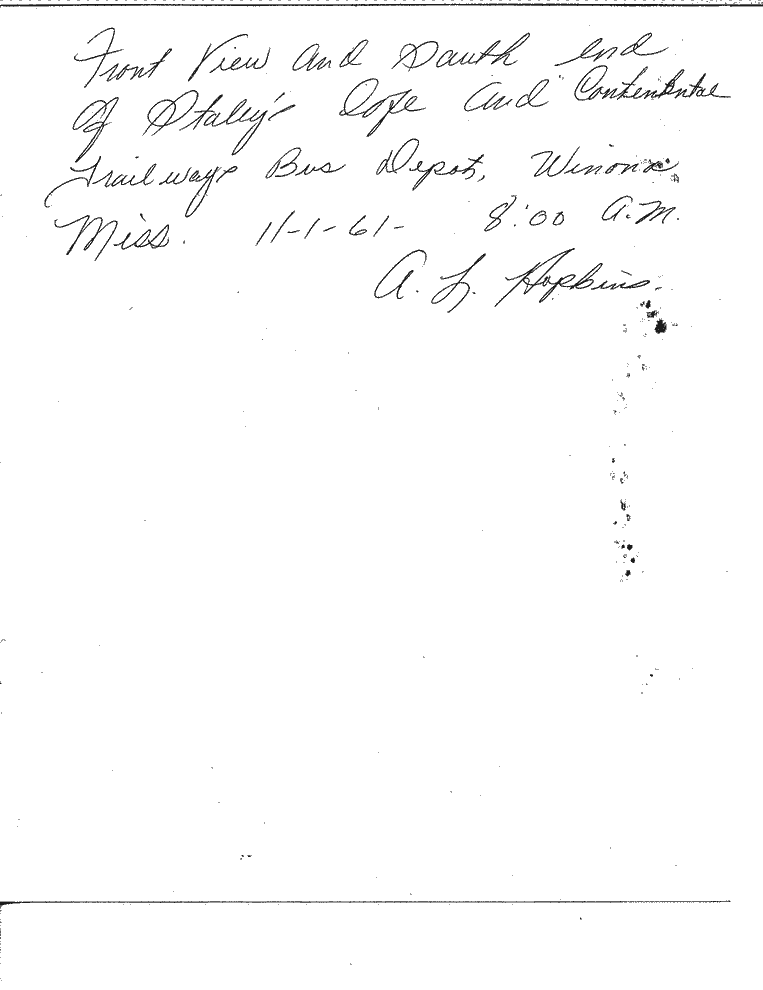 Front View and South end
of Staley's Cafe and Continental
Trailways Bus Depot, Winona
Miss. 11-1-61- 8:00 A.M.
A. L. Hopkins.